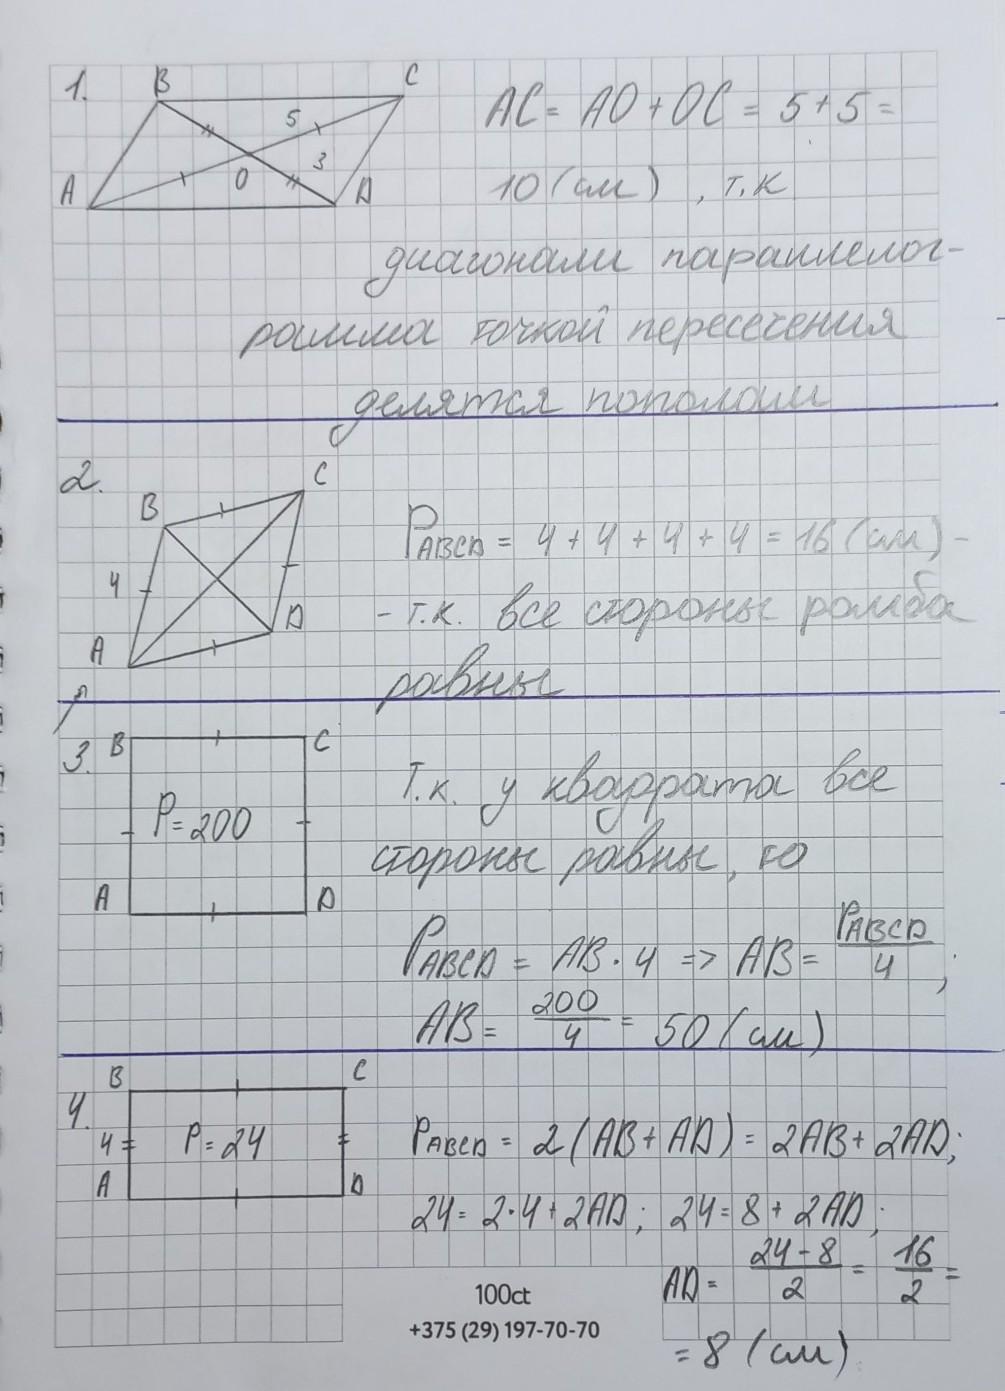 1. B C AC = AO + OC = 5 + 5 =
5
3
A O D 10 (см) , т.к
диагонали параллелог-
рамма точкой пересечения
делятся пополам
2. C
B PABCD = 4 + 4 + 4 + 4 = 16 (см) -
4
D - т.к. все стороны ромба
A
равны
3. B C Т.к. у квадрата все
P = 200
стороны равны, то
A D
PABCD = AB · 4 => AB = PABCD/4 ;
AB = 200/4 = 50 (см)
B C
4. 4 P = 24 PABCD = 2(AB + AD) = 2AB + 2AD;
A D
24 = 2·4 + 2AD; 24 = 8 + 2AD;
AD = 24 - 8/2 = 16/2 =
= 8 (см)
100ct
+375 (29) 197-70-70